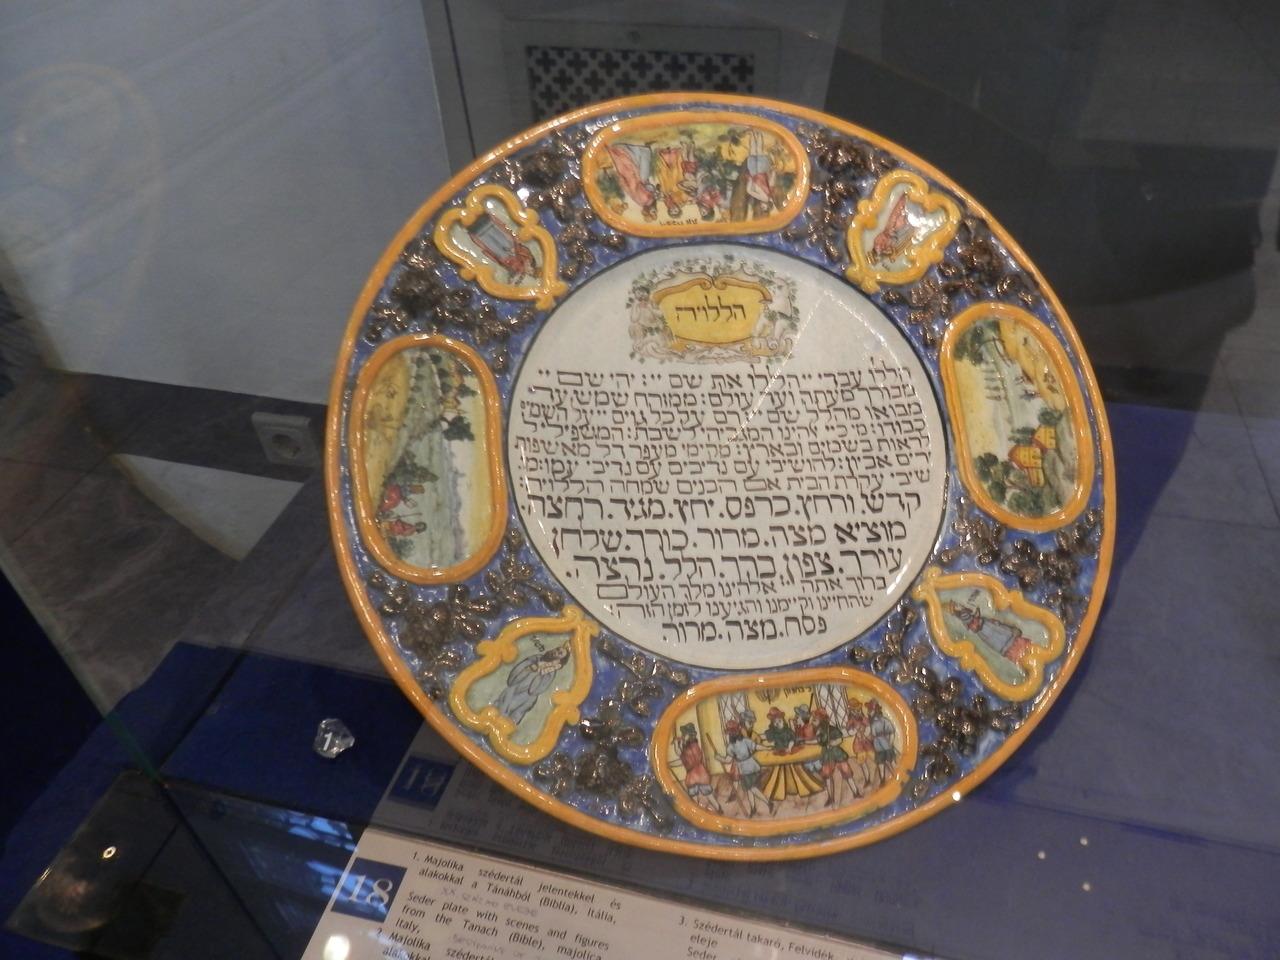 הללויה
הללו עבדי יי הללו את שם יי: יהי שם יי
מבורך מעתה ועד עולם: ממזרח שמש עד
מבואו מהלל שם יי רם על כל גוים יי על השמי
כבודו: מי כיי אלהינו המגביהי לשבת: המשפילי ל
לראות בשמים ובארץ: מקימי מעפר דל מאשפות
ירים אביון: להושיבי עם נדיבים עם נדיבי עמו: מ
שיבי עקרת הבית אם הבנים שמחה הללויה:
קדש.ורחץ.כרפס.יחץ.מגיד.רחצה.
מוציא מצה.מרור.כורך.שלחן
עורך.צפון ברך.הלל.נרצה.
ברוך אתה יי אלהינו מלך העולם
שהחיינו וקיימנו והגיענו לזמן הזה:
פסח.מצה.מרור.
1
18
1. Majolika szédertál jelentekkel és
alakokkal a Tánáhból (Biblia), Itália,
XX. SZÁZAD ELEJE
Seder plate with scenes and figures
from the Tanach (Bible), majolica,
Italy,
2. Majolika szédertál
alakokkal
3. Szédertál takaró, Felvidék,
eleje
Seder